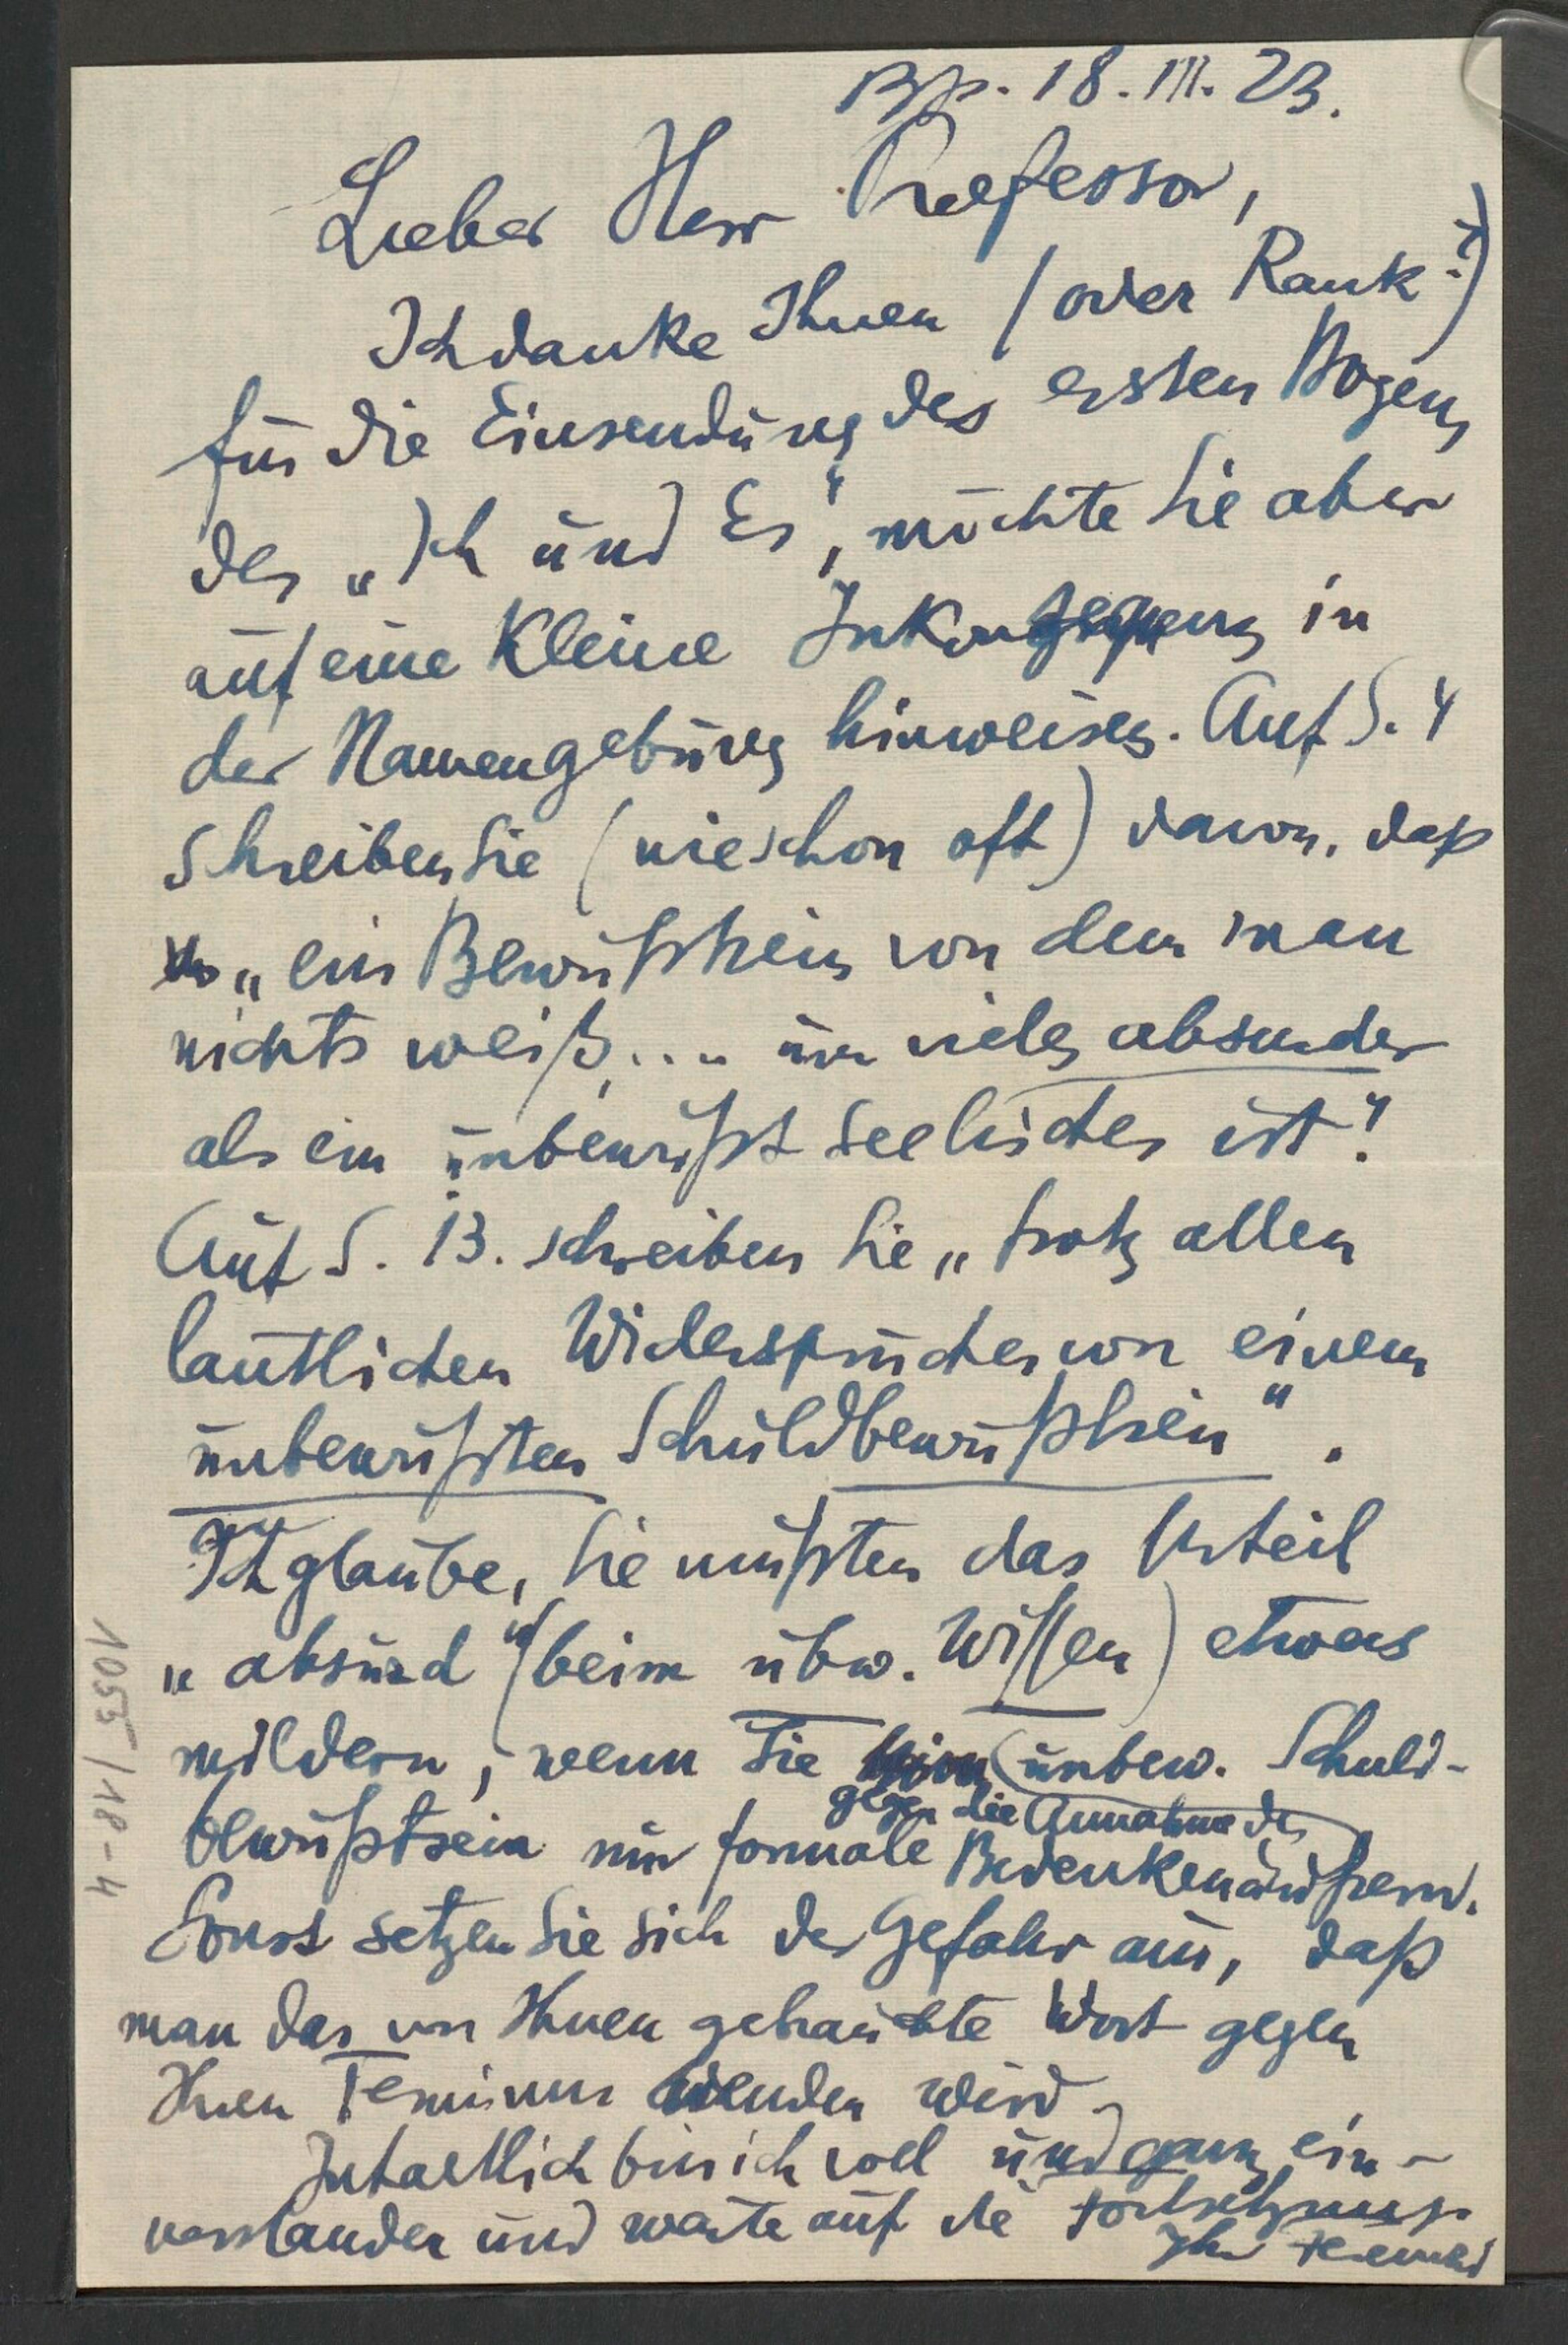 Bp. 18. III. 23.
Lieber Herr Professor,
Ich danke Ihnen (oder Rank?)
für die Einsendung des ersten Bogens
des „Ich und Es“, möchte Sie aber
auf eine kleine Inkonsequenz in
der Namengebung hinweisen. Auf S. 4
schreiben Sie (wie schon oft) davon, daß
„ein Bewußtsein von dem man
nichts weiß, ... um vieles absurder
als ein unbewußt Seelisches ist“!
Auf S. 13. schreiben Sie „trotz allen
lautlichen Widerspruches von einem
unbewußten Schuldbewußtsein“.
Ich glaube, Sie müßten das Urteil
„absurd“ (beim übw. Wissen) etwas
mildern, wenn Sie unbew. Schuld-
gegen die Annahme des
bewußtsein nur formale Bedenken äußern.
Sonst setzen Sie sich der Gefahr aus, daß
man das von Ihnen gebrauchte Wort gegen
Ihren Terminus wenden wird.
Inhaltlich bin ich voll und ganz ein-
verstanden und warte auf die Fortsetzung.
Ihr Ferenczi
1053/18-4